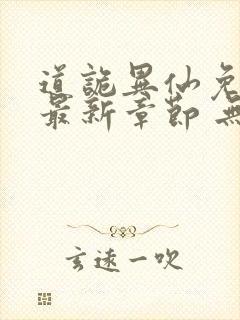 道詭異仙免
最新章節 無
玄遠一吹